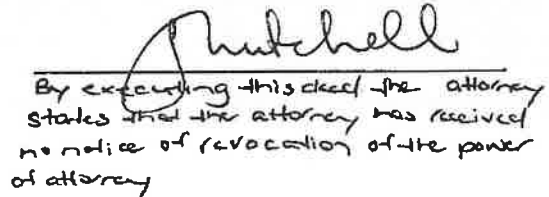 Mitchell
By executing this deed the attorney
states that the attorney has received
no notice of revocation of the power
of attorney